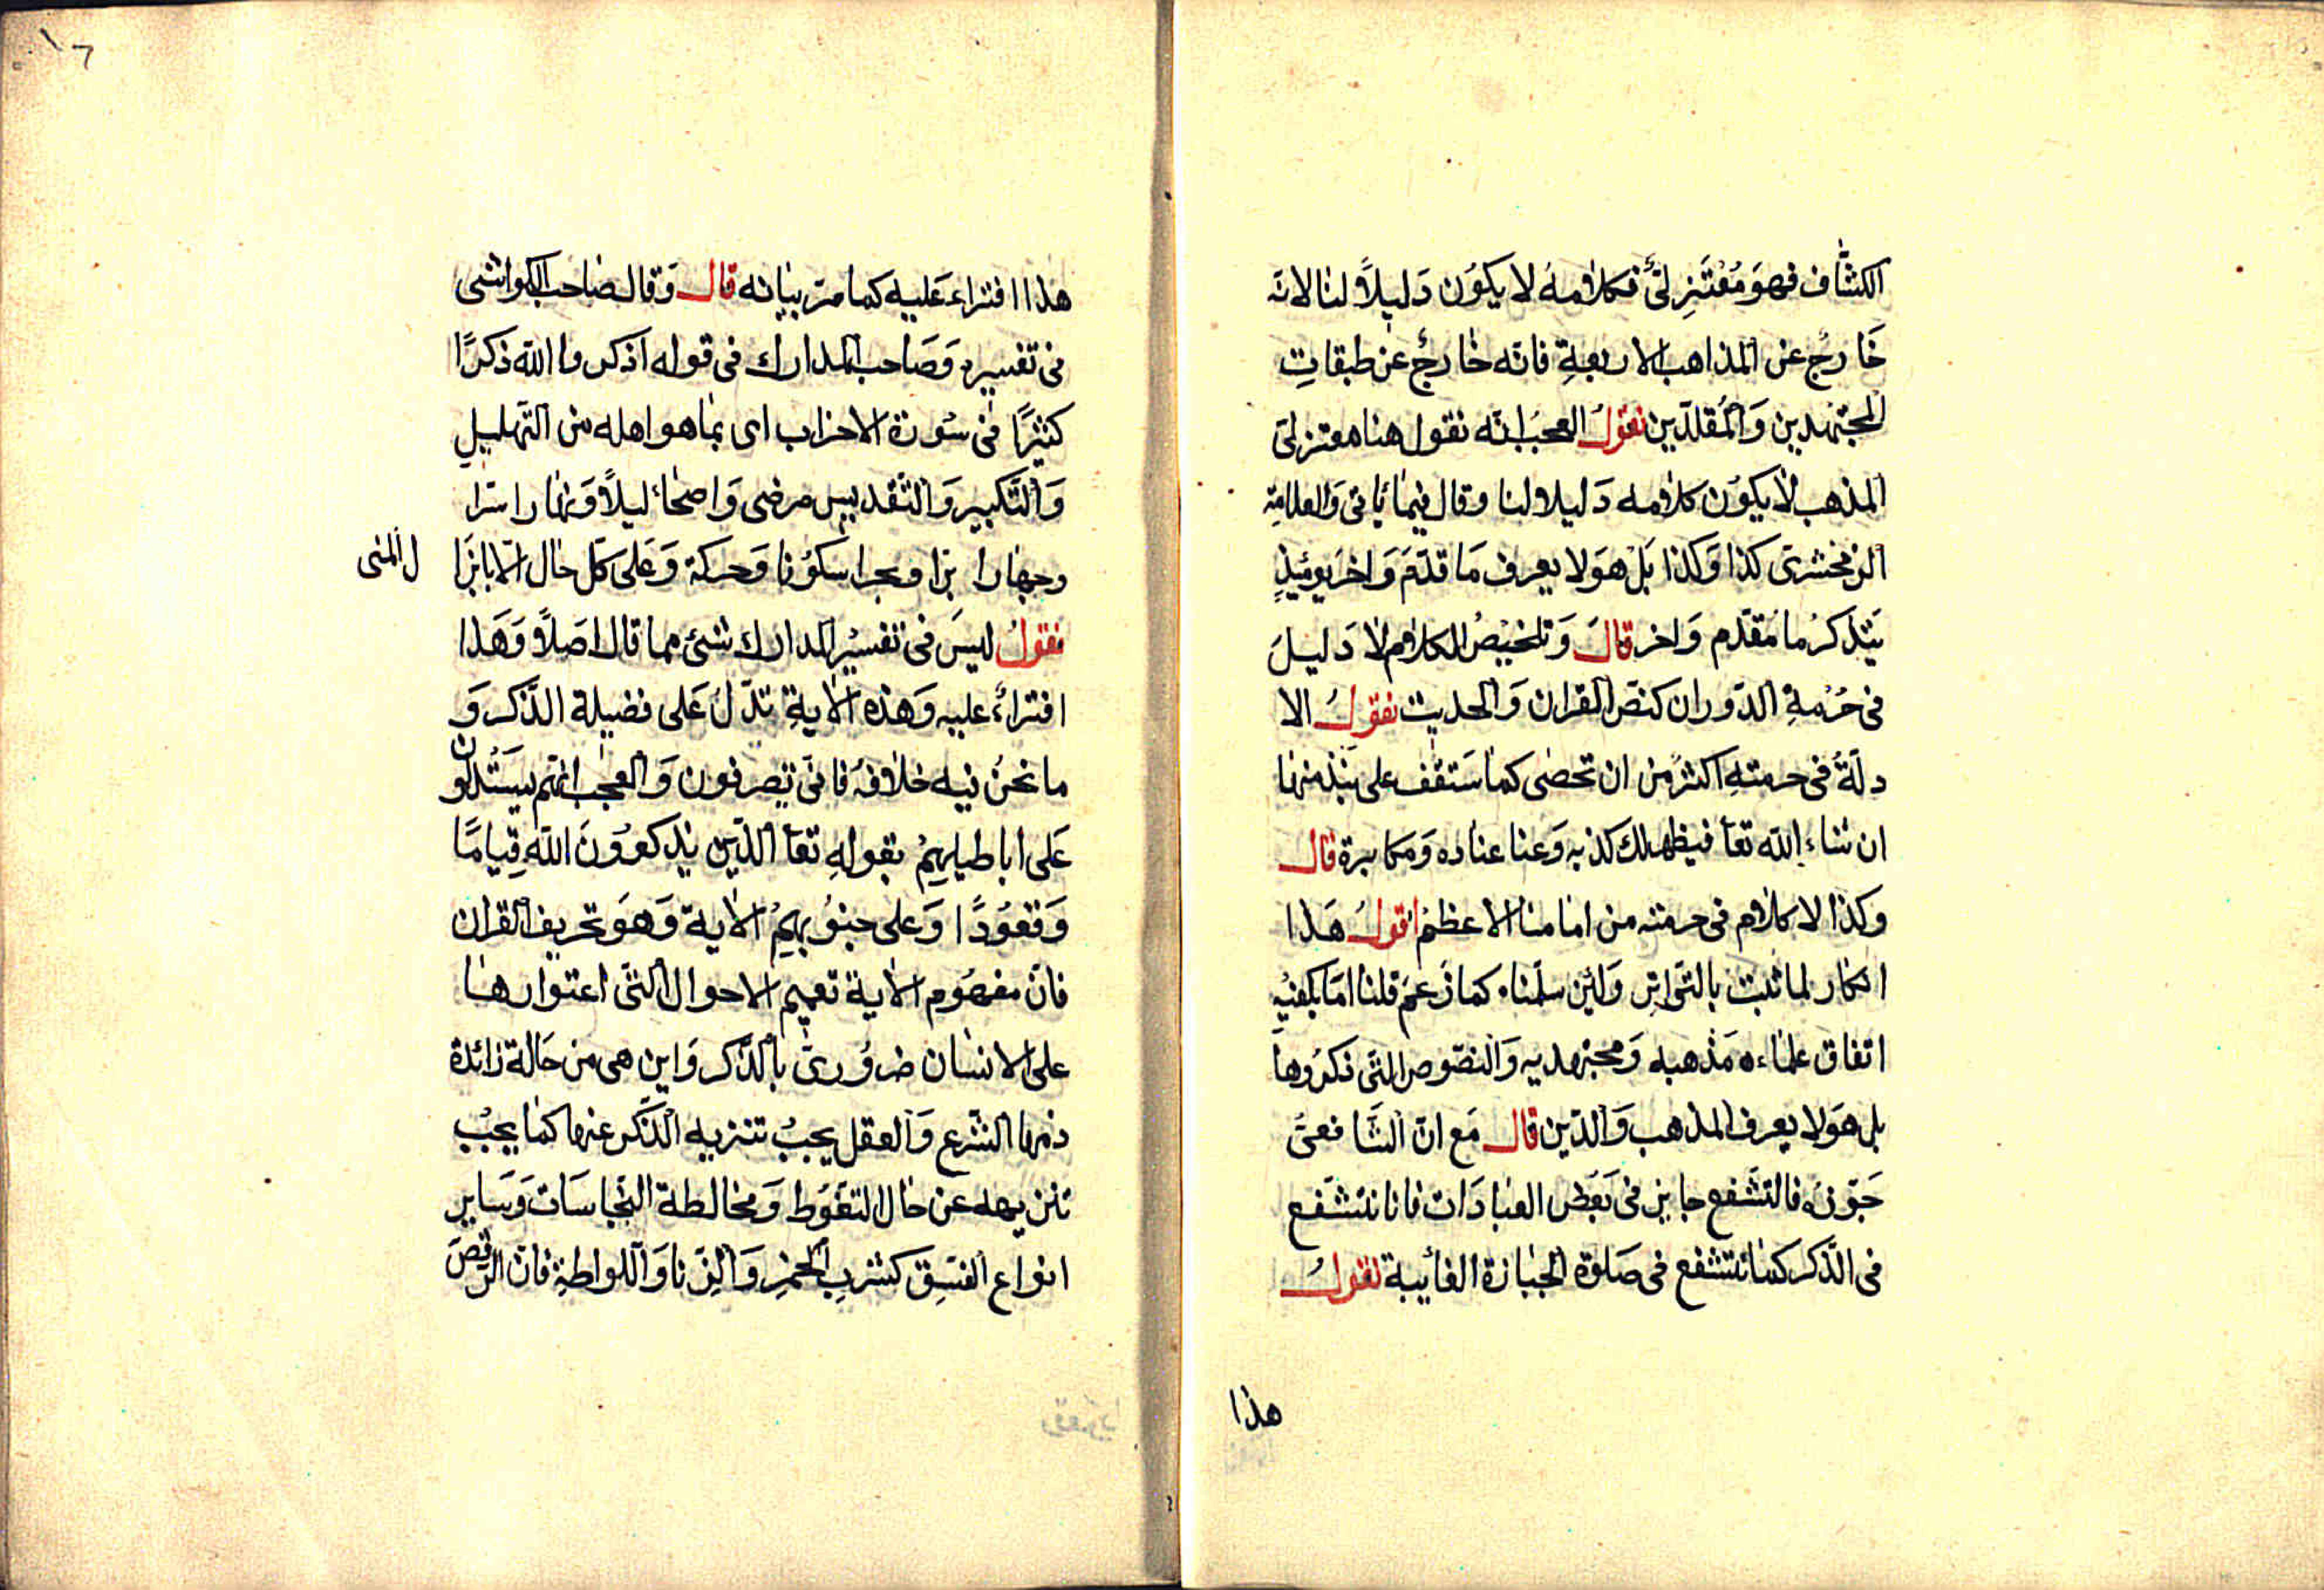 الكشّاف فهوَ مُعْتَزِلىّ فكلامهُ لا يكوُن دَليلاً لنا لانه
خَارجٌ عن المذاهب الاربعةِ فانه خارجٌ عن طبقاتِ
المجتهدين وَالمُقلدّين نقولُ العجبُ انّه نقول هنا معتزلىّ
المذهب لا يكوُن كلامه دَليلا لنا وقال فيما يأتى وَالعلامة
الزمخشرى كذا وَكذا بَلْ هوَ لا يعرف مَا قدّمَ وَاخرَ يومئذٍ
يَتذكرُ ما مُقدّم وَاخر قالَ وَتلخيصُ الكلام لا دَليلَ
فى حُرْمةِ الدّوران كنصّ القران وَالحديث نقولُ الا
دلّةُ فى حرمتهِ اكثرُ من ان تحصٰى كما سَتقف على نبذ منها
ان شاء الله تعا فيظهر لك كذبه وَعنا عناده وَمكابرة قال
وكذا لا كلام فى حرمته من امامنا الاعظم اقولُ هَذا
انكار لما ثبت بالتّواتر وَلئن سلّمناه كما زعمَ قلنا امّا يكفيْهِ
اتفاق علماءه مَذهبه وَمجتهديه وَالنصّوص التّى ذكرُوها
بل هوَ لا يعرف المذهب وَالدّين قال مَع انّ الشّافعىَّ
جَوّزه فالتشّفع جايز فى بَعْض العبادَات فانا نتشّفع
فى الذّكر كما نتشفع فى صَلوة الجنازة الغأيبة نقولُ
هذا
١٦
هذا افتراء عَليه كما مرّ بيانه قال وَقال صَاحب الكواشى
فى تفسيره وَصَاحب المدارك فى قوله اذكروا الله ذكرًا
كثيرًا فى سُورة الاحزاب اى بما هو اهله من التّهليلِ
وَالتَّكبير وَالتّقديس مرضى وَاصحاء ليلاً وَنهارا سرّا
وجهارا برّا وبحرا سكوُنا وَحركة وَعَلى كلّ حال
ل المنى
نقولُ ليسَ فى تفسيْر المدارك شىء مما قال اصَلاً وَهَذا
افتراءٌ عليه وَهذه الآيةِ تدّلُ عَلى فضيلة الذّكر وَ
ما نحنُ فيه خلافهُ فانّى تصرفون وَالعجب انهّم يسَتْدلّون
عَلى اباطيلهِمْ بقولهِ تعا الذّين يذكروُنَ اللهَ قِيامًا
وَقعوُدًا وَعلى جنوُبهِمْ الآية وَهوَ تحريف القران
فانّ مفهوُم الآية تعميم الاحوال التّى اعتوارهَا
على الانسَان ضروُرىّ بالذّكر وَاين هى من حَالة زائدة
ذمها الشّرع وَالعقل يجبُ تنزيه الذّكر عنها كما يجبُ
تنزيهه عن حال التغَوّط وَمخالطة النّجاسَات وَسَايرِ
انواع الفسق كشرب الخمر وَالزّنا وَاللواطةِ فانّ الرّقصَ